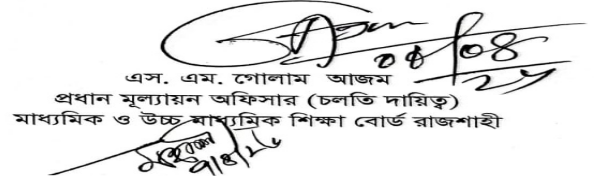 ০৪/০৪
২৬
এস. এম. গোলাম আজম
প্রধান মূল্যায়ন অফিসার (চলতি দায়িত্ব)
মাধ্যমিক ও উচ্চ মাধ্যমিক শিক্ষা বোর্ড রাজশাহী